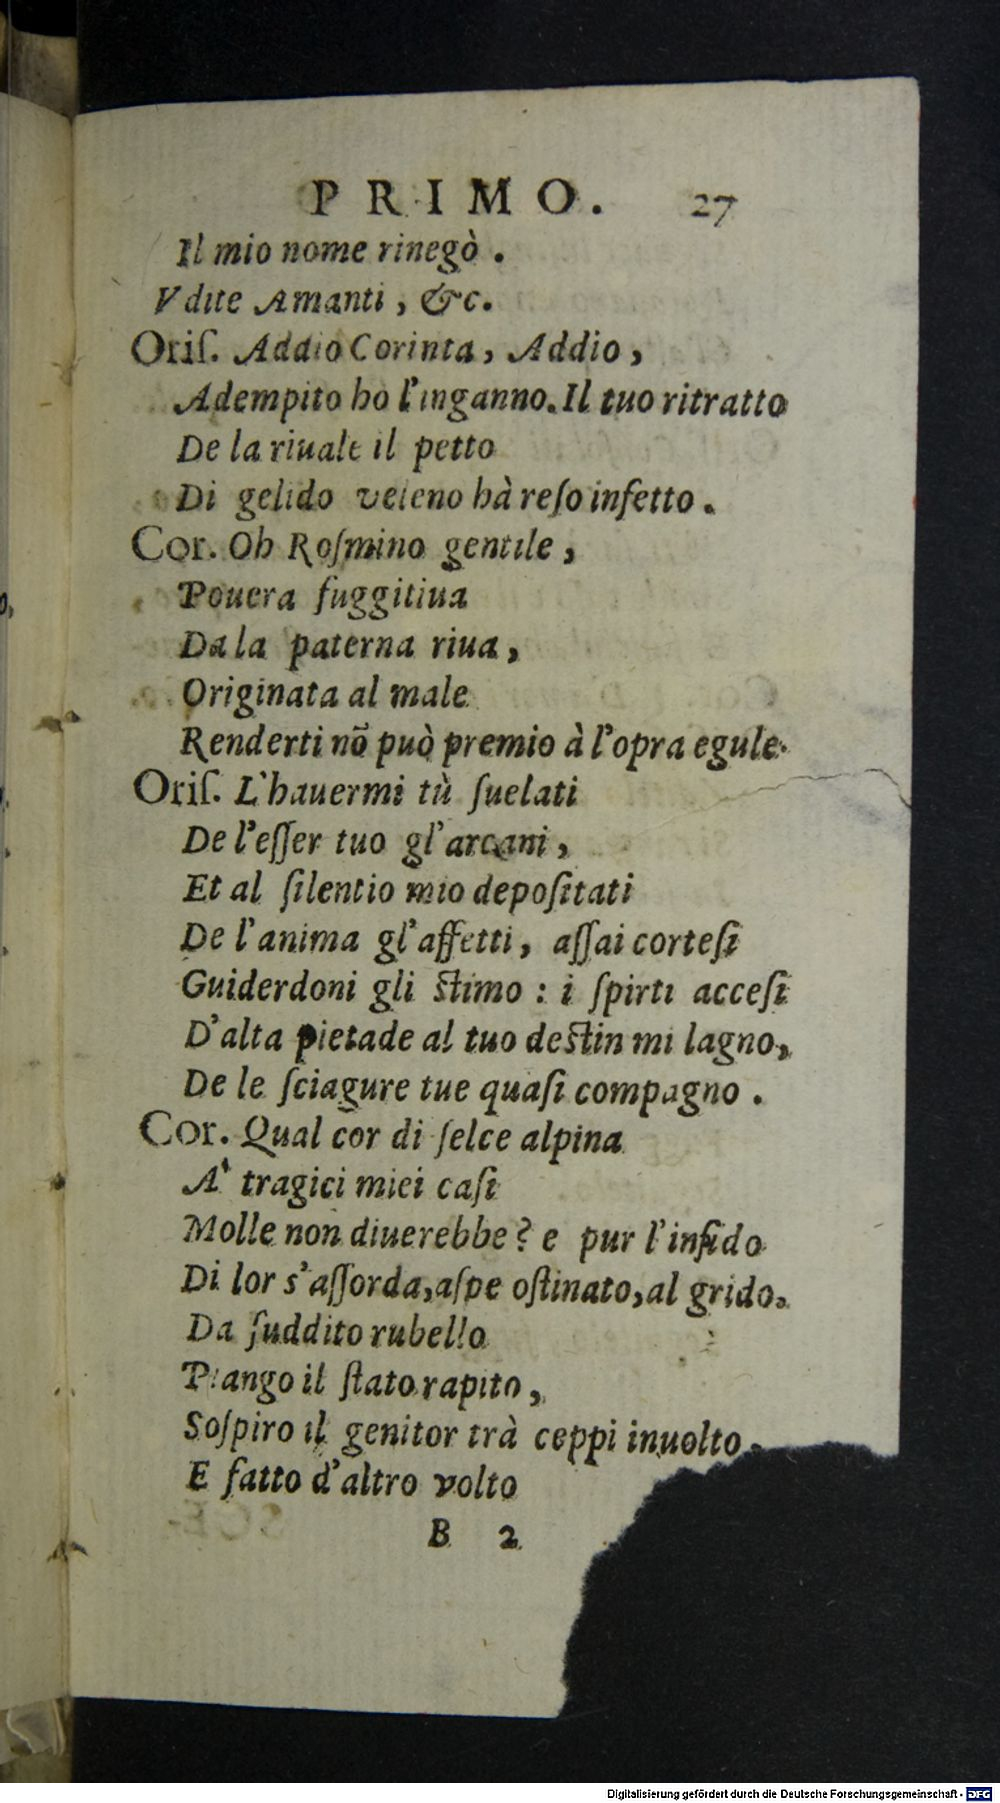 PRIMO. 27
Il mio nome rinegò.
Vdite Amanti, &c.
Oriſ. Addio Corinta, Addio,
Adempito ho l'inganno. Il tuo ritratto
De la riuale il petto
Di gelido veleno hà reſo infetto.
Cor. Oh Roſmino gentile,
Pouera fuggitiua
Da la paterna riua,
Originata al male
Renderti nõ può premio à l'opra egule.
Oriſ. L'hauermi tù ſuelati
De l'eſſer tuo gl'arcani,
Et al ſilentio mio depoſitati
De l'anima gl'affetti, aſſai corteſi
Guiderdoni gli ſtimo : i ſpirti acceſi
D'alta pietade al tuo deſtin mi lagno,
De le ſciagure tue quaſi compagno.
Cor. Qual cor di ſelce alpina
A' tragici miei caſi
Molle non diuerebbe? e pur l'infido
Di lor s'aſſorda, aſpe oſtinato, al grido.
Da ſuddito rubello
Piango il ſtato rapito,
Soſpiro il genitor trà ceppi inuolto,
E fatto d'altro volto
B 2
Digitalisierung gefördert durch die Deutsche Forschungsgemeinschaft - DFG